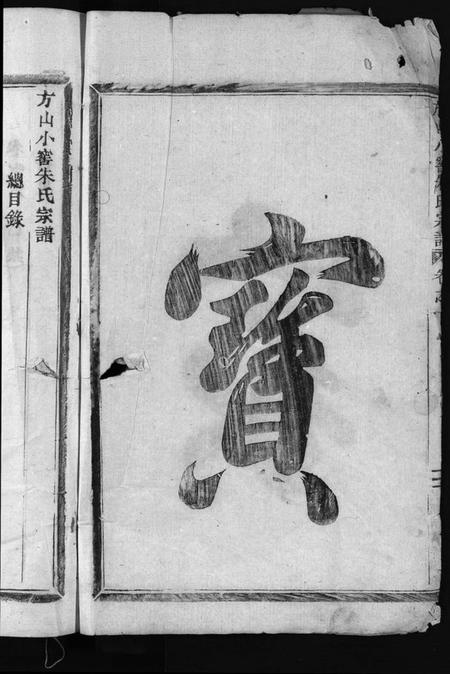 寶
方山小窰朱氏宗譜
總目錄